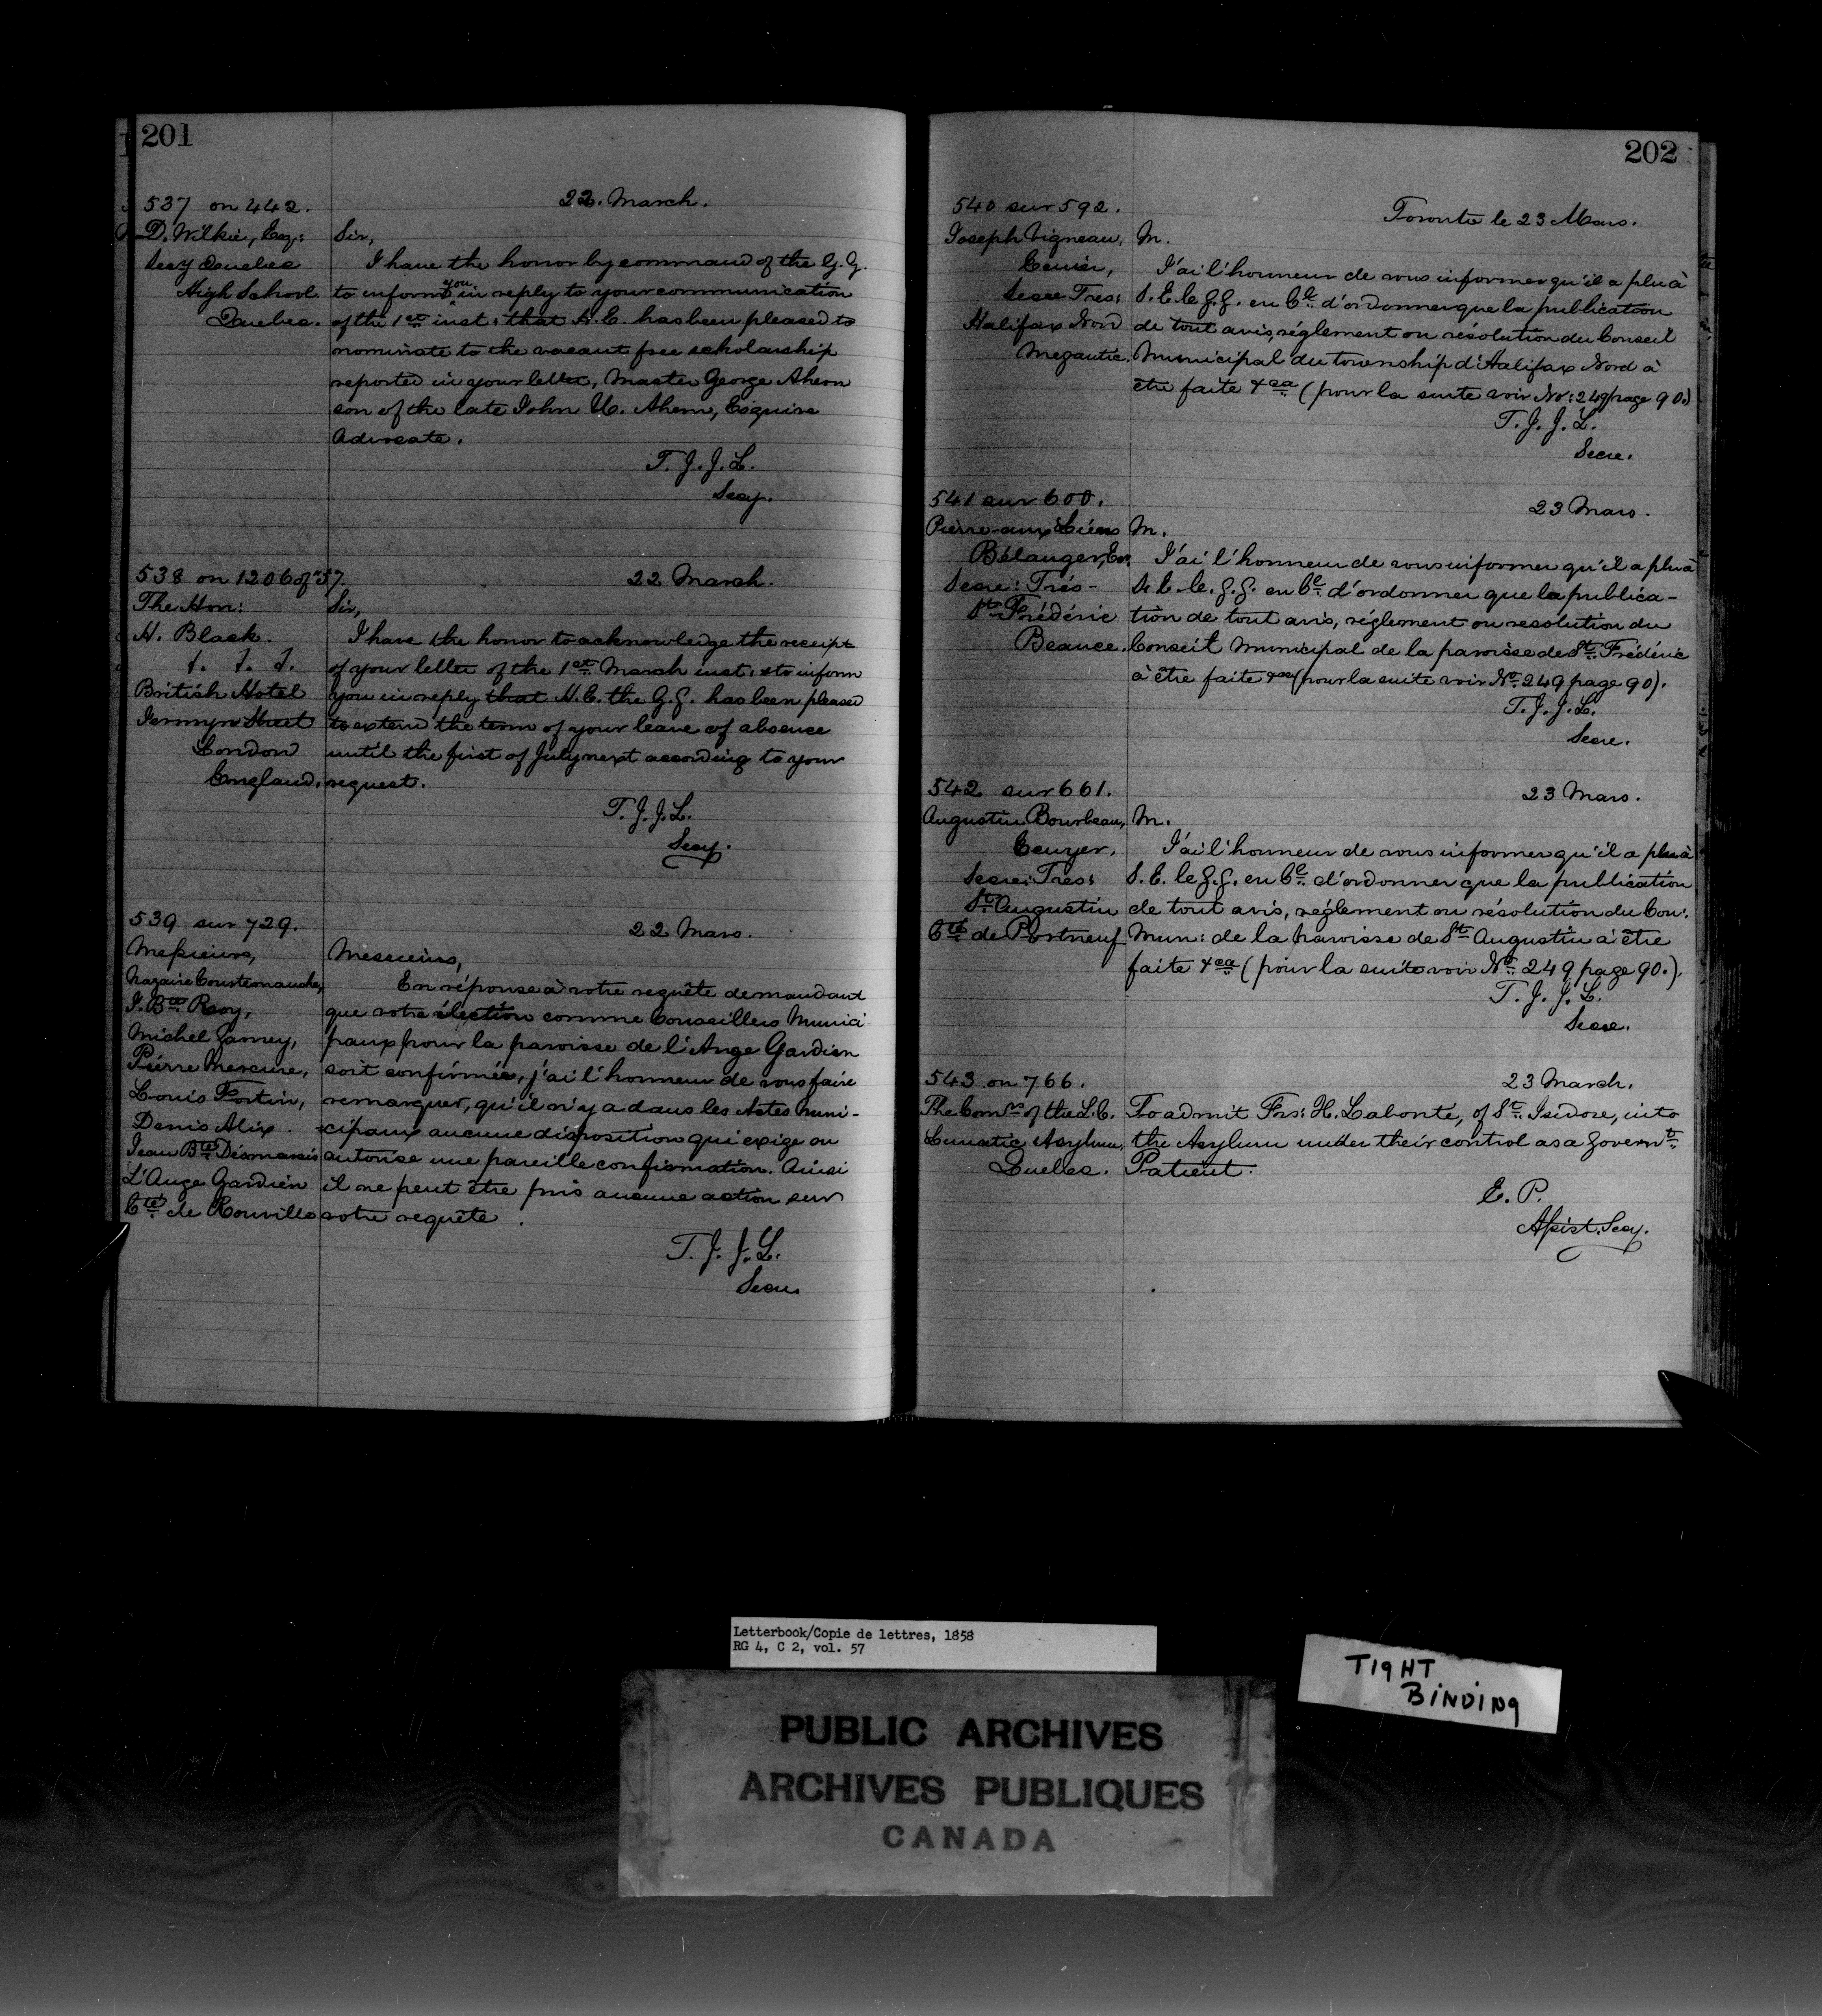 201
537 on 442.
22. March.
D. Wilkie, Esq:
Secy Quebec
High School
Quebec.
Sir,
I have the honor by command of the G. G.
to inform you in reply to your communication
of the 1st inst: that H. E. has been pleased to
nominate to the vacant free scholarship
reported in your letter, Master George Ahern
son of the late John U. Ahern, Esquire
Advocate.
T. J. J. L.
Secy.
538 on 1206 of '57.
22 March.
The Hon:
H. Black.
J. J. J.
British Hotel
Jermyn Street
London
England.
Sir,
I have the honor to acknowledge the receipt
of your letter of the 1st March inst: & to inform
you in reply that H. E. the G. G. has been pleased
to extend the term of your leave of absence
until the first of July next according to your
request.
T. J. J. L.
Secy.
539 sur 729.
22 Mars.
Messieurs,
Nazaire Courtemanche,
J. Bte Roy,
Michel Gamey,
Pierre Mercure,
Louis Fortin,
Denis Alix.
Jean Bte Désmarais
L'Ange Gardien
Cté de Rouville
Messieurs,
En réponse à votre requête demandant
que votre élection comme Conseillers Munici
paux pour la paroisse de l'Ange Gardien
soit confirmée, j'ai l'honneur de vous faire
remarquer, qu'il n'y a dans les Actes Muni-
cipaux aucune disposition qui exige ou
autorise une pareille confirmation. Ainsi
il ne peut être pris aucune action sur
votre requête.
T. J. J. L.
Secre.
202
540 sur 592.
Toronto le 23 Mars.
Joseph Vigneau,
Ecuier,
Secre Tres:
Halifax Nord
Megantic.
M.
J'ai l'honneur de vous informer qu'il a plu à
S. E. le G. G. en Cl. d'ordonner que la publication
de tout avis, réglement ou résolution du Conseil
Municipal du township d'Halifax Nord à
être faite &ca (pour la suite voir No: 249 page 90.)
T. J. J. L.
Secre.
541 sur 600.
23 Mars.
Pierre-aux-Liens
Bélanger, Er.
Secre: Trés-
St Frédéric
Beauce.
M.
J'ai l'honneur de vous informer qu'il a plu à
S. E. le G. G. en Cl. d'ordonner que la publica-
tion de tout avis, réglement ou resolution du
Conseil Municipal de la paroisse de St. Frédéric
à être faite &ca (pour la suite voir No. 249 page 90).
T. J. J. L.
Secre.
542 sur 661.
23 Mars.
Augustin Bourbeau,
Ecuyer.
Secre: Tres:
St. Augustin
Cté de Portneuf
M.
J'ai l'honneur de vous informer qu'il a plu à
S. E. le G. G. en Cl. d'ordonner que la publication
de tout avis, réglement ou résolution du Con:
Mun: de la paroisse de St Augustin à être
faite &ca (pour la suite voir No. 249 page 90.).
T. J. J. L.
Secre.
543 on 766.
23 March.
The Comrs of the L. C.
Lunatic Asylum,
Quebec.
To admit Frs: H. Labonté, of St. Isidore, into
the Asylum under their control as a Governt.
Patient.
E. P.
Assist. Secy.
Letterbook/Copie de lettres, 1858
RG 4, C 2, vol. 57
TIGHT
BINDING
PUBLIC ARCHIVES
ARCHIVES PUBLIQUES
CANADA